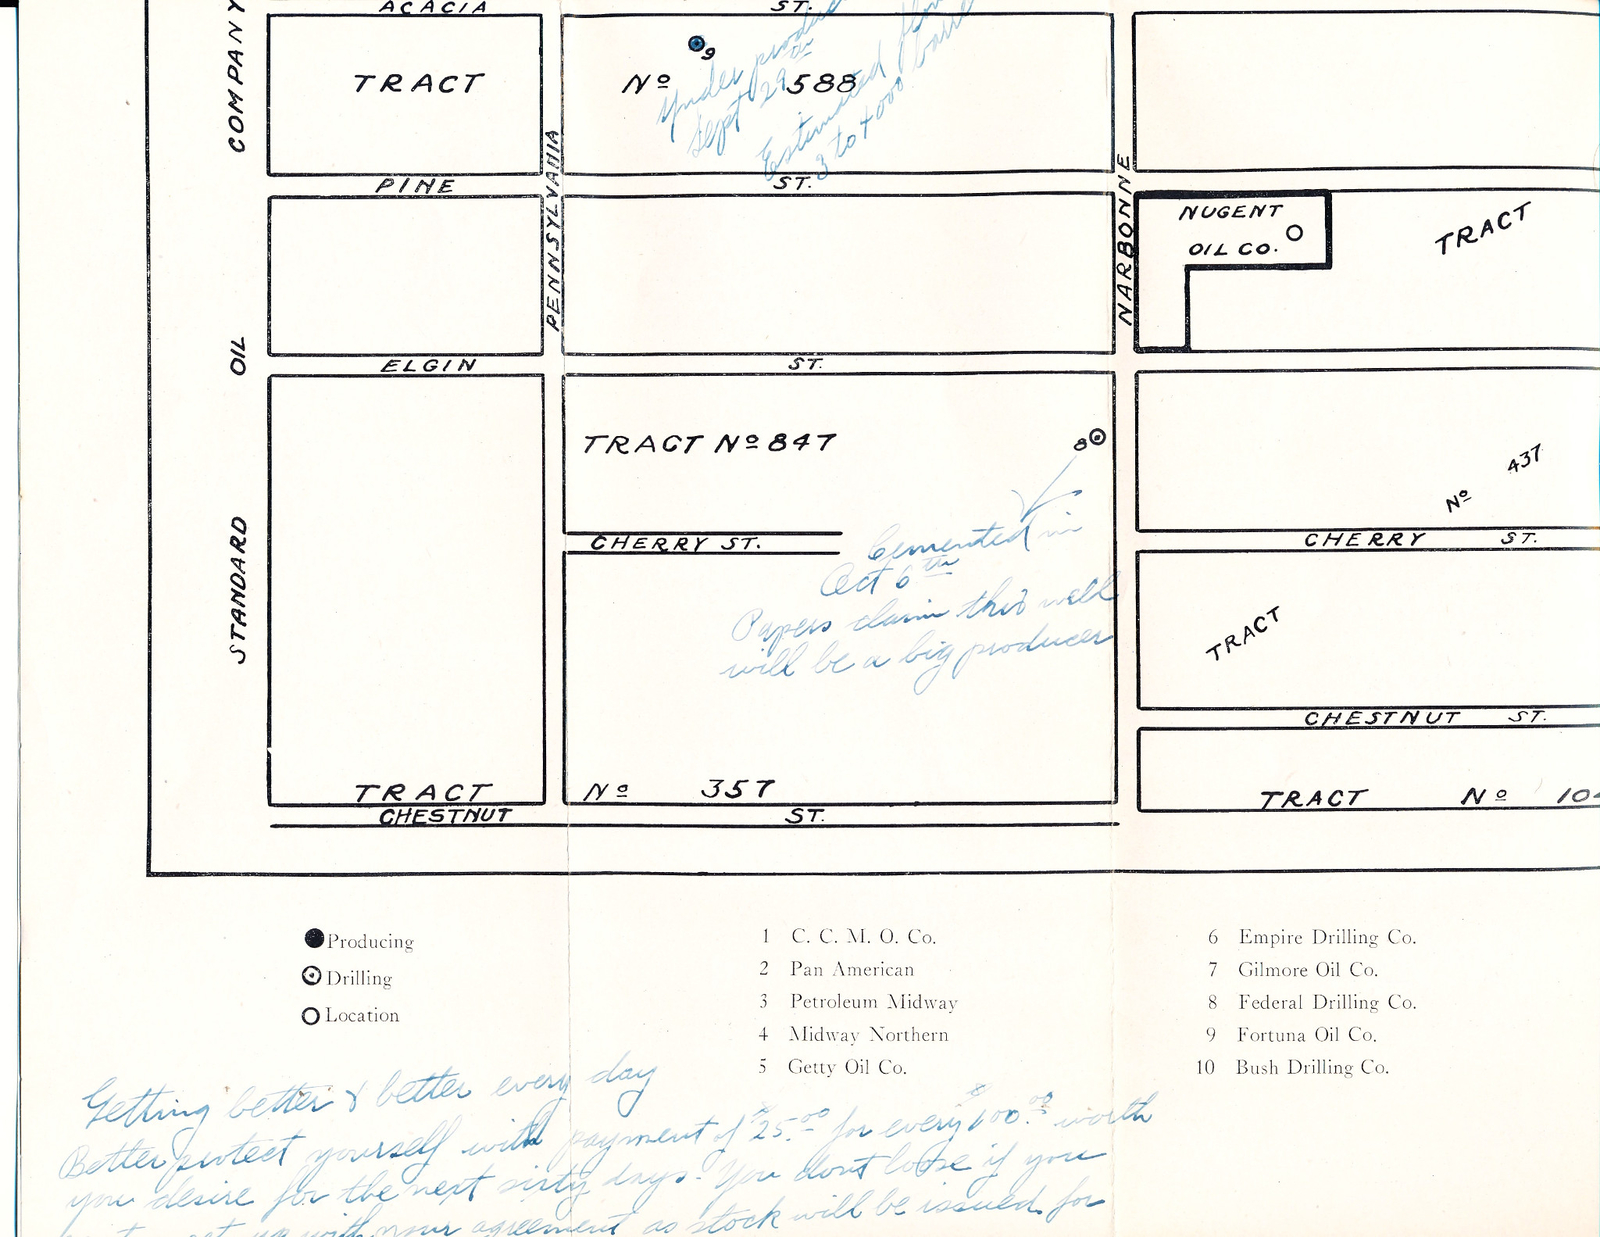 ACACIA ST.
COMPANY
9
TRACT Nº 588
Under
Sept 29
Estimated flow
3 to 4000 barre
PINE ST.
PENNSYLVANIA
NARBONNE
NUGENT
OIL CO.
TRACT
OIL
ELGIN ST.
TRACT Nº 847
8
437
Nº
STANDARD
CHERRY ST.
CHERRY ST.
Cemented in
Oct 6th
Papers claim this well
will be a big producer
TRACT
CHESTNUT ST.
TRACT Nº 357
TRACT Nº
CHESTNUT ST.
Producing
Drilling
Location
1 C. C. M. O. Co.
2 Pan American
3 Petroleum Midway
4 Midway Northern
5 Getty Oil Co.
6 Empire Drilling Co.
7 Gilmore Oil Co.
8 Federal Drilling Co.
9 Fortuna Oil Co.
10 Bush Drilling Co.
Getting better & better every day
Better protect yourself with payment of $25.00 for every $100.00 worth
you desire for the next sixty days. You dont loose if you
up with your agreement as stock will be issued for